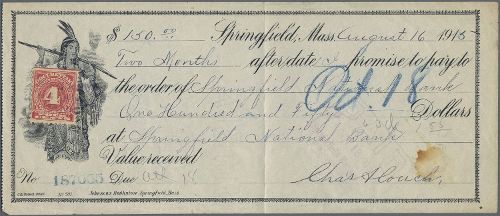 $ 150.00 Springfield, Mass. August 16 1915
Two Months after date I promise to pay to
the order of Springfield National Bank
One Hundred and Fifty Dollars
at Springfield National Bank
Value received
No 187035 Due Oct 18
Oct 18
Chas A Couch
4